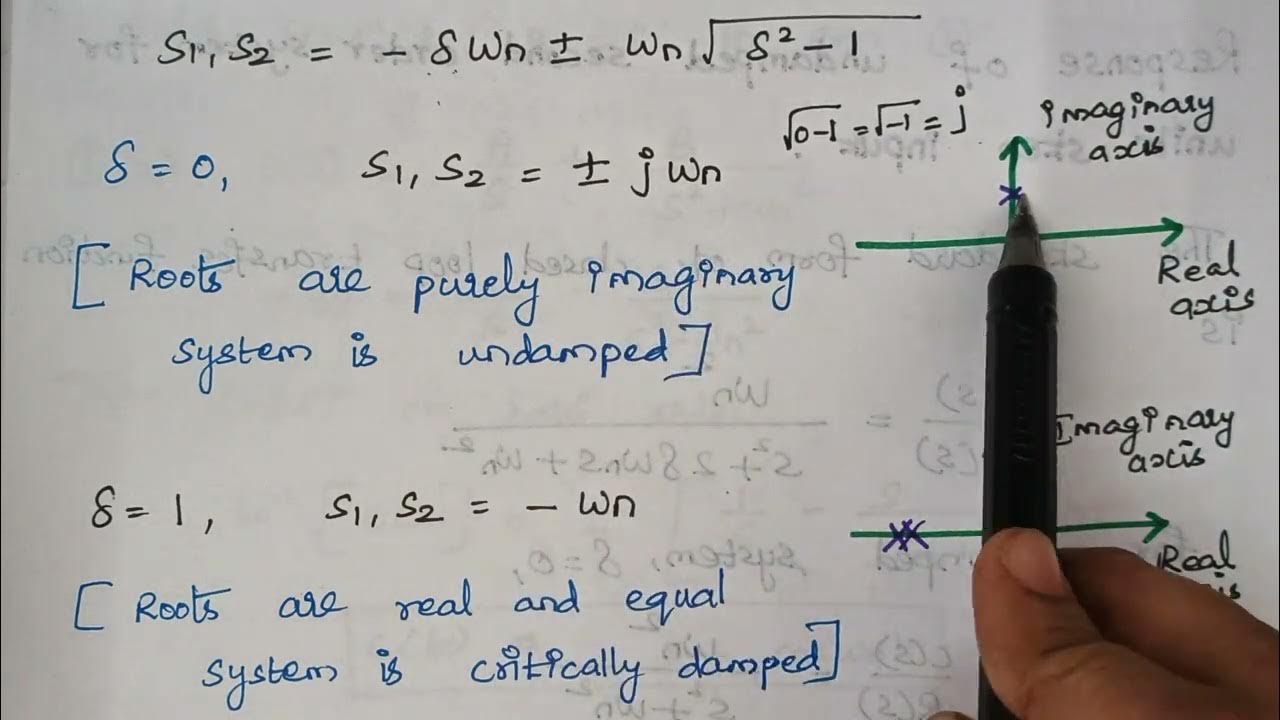 S1, S2 = - δ Wn ± Wn √δ² - 1
√0-1 = √-1 = j
imaginary
axis
δ = 0, S1, S2 = ± j Wn
Real
axis
[ Roots are purely imaginary
system is undamped ]
Imaginary
axis
δ = 1, S1, S2 = - Wn
Real
[ Roots are real and equal
system is critically damped ]